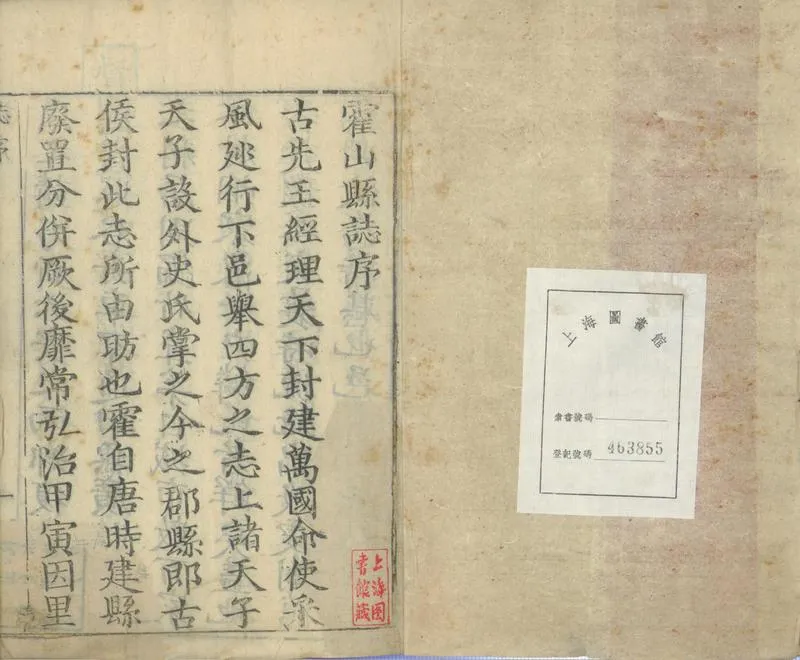 上海圖書館
索書號碼
登記號碼 463855
霍山縣誌序
古先王經理天下封建萬國命使采
風廵行下邑舉四方之志上諸天子
天子設外史氏掌之今之郡縣即古
侯封此志所由昉也霍自唐時建縣
廢置分併厥後靡常弘治甲寅因里
誌序
一
上海图
書館藏